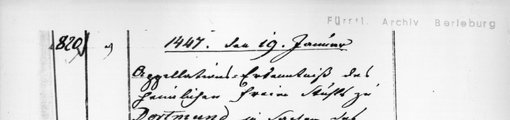 Fürstl. Archiv Berleburg
820) a) 1447. den 19. Januar
Appellations-Erkenntniß des
heimlichen freien Stuhls zu
Dortmund in Sachen des